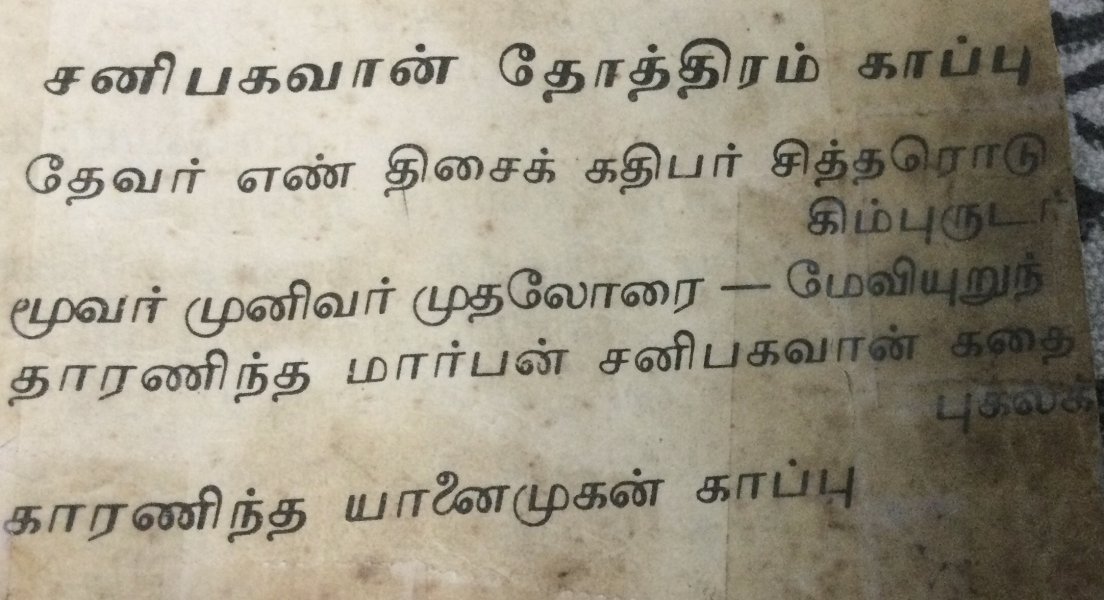 சனிபகவான் தோத்திரம் காப்பு
தேவர் எண் திசைக் கதிபர் சித்தரொடு
கிம்புருடர்
மூவர் முனிவர் முதலோரை — மேவியுறுந்
தாரணிந்த மார்பன் சனிபகவான் கதை
புகலக்
காரணிந்த யானைமுகன் காப்பு